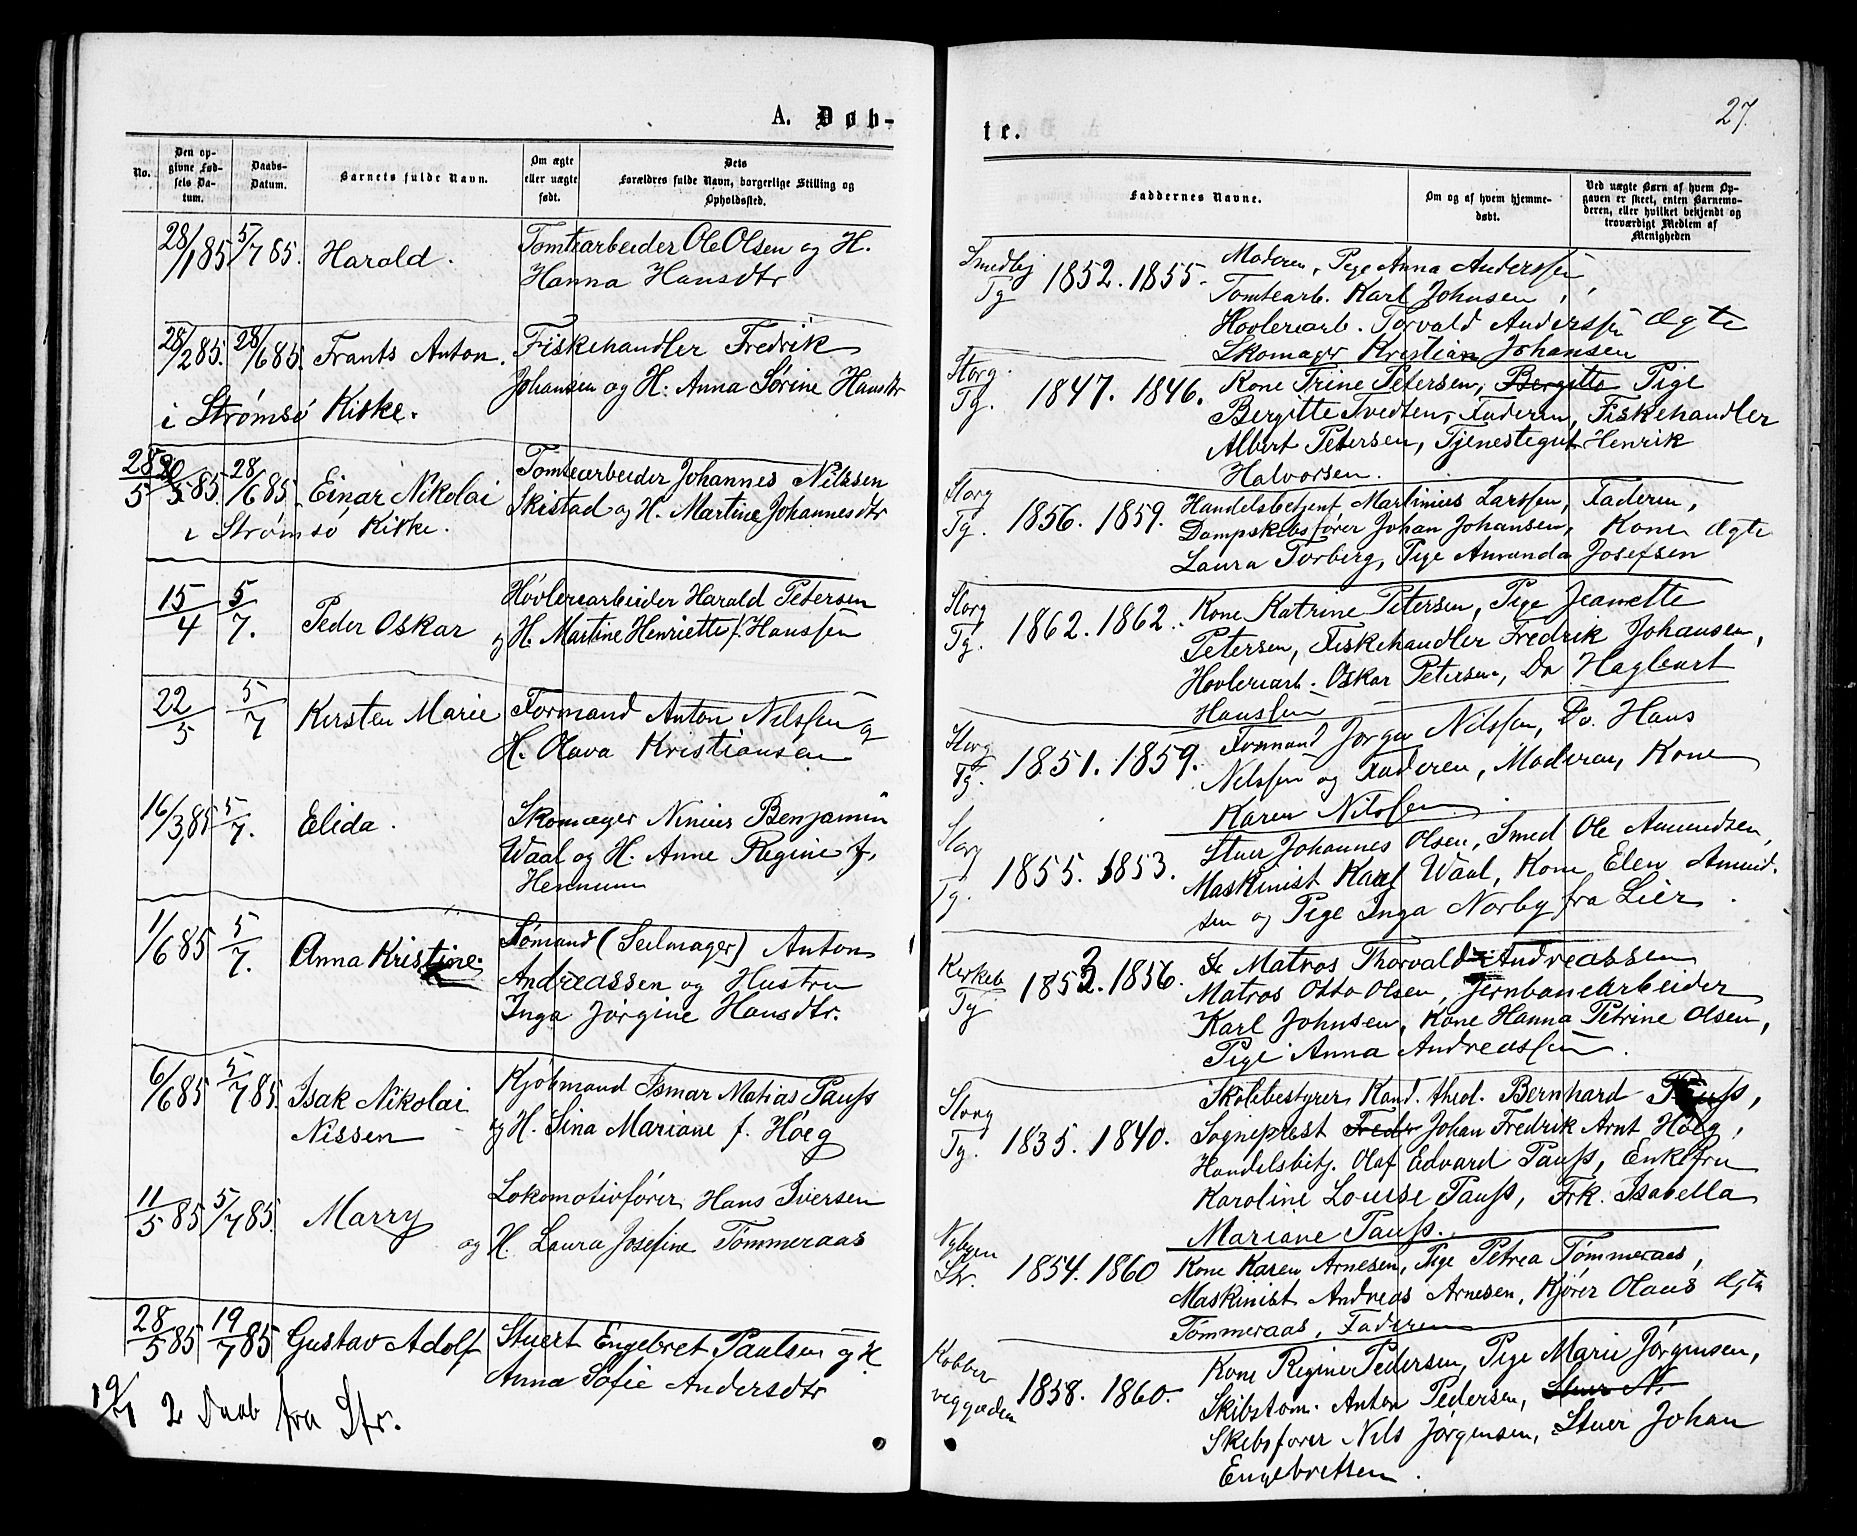 A. Døb-
No.
Den op-
givne Fød-
sels Da-
tum.
Daabs-
Datum.
Barnets fulde Navn.
Om ægte
eller uægte
født.
Dets
Forældres fulde Navn, borgerlige Stilling og
Opholdssted.
28/1 85 5/7 85. Harald. Tomtearbeider Ole Olsen og H.
Hanna Hansdtr
28/2 85. 28/6 85. Frants Anton. Fiskehandler Fredrik
Johansen og H. Anna Sørine Hansdtr
i Strømsø Kirke.
28/5 85. 28/6 85. Einar Nikolai Tomtearbeider Johannes Nilssen
Skistad og H. Martine Johannesdtr
i Strømsø Kirke.
15/4 5/7. Peder Oskar Høvleriarbeider Harald Petersen
og H. Martine Henriette f. Hanssen
22/5 5/7 Kirsten Marie Formand Anton Nilssen og
H. Olava Kristiansen
16/3 85 5/7. Elida. Skomager Ninius Benjamin
Waal og H. Anne Regine f.
Hennum
1/6 85 5/7. Anna Kristine. Sømand (Seilmager) Anton
Andreassen og Hustru
Inga Jørgine Hansdtr.
6/6 85 5/7 85. Isak Nikolai Kjøbmand Ismar Matias Pauss
Nissen og H. Sina Mariane f. Høeg
11/5 85 5/7 85. Marry Lokomotivfører Hans Iversen
og H. Laura Josefine Tømmeraas
28/5 85 19/7 85 Gustav Adolf Stuert Engebret Paulsen og H
Anna Sofie Andersdtr
19/7 2 Daab fra Str.
27.
te.
Faddernes Navne.
Om og af hvem hjemme-
døbt.
Ved uægte Børn af hvem Op-
gaven er skeet, enten Barnemo-
deren, eller hvilket bekjendt og
troværdigt Medlem af
Menigheden
Smedbj
Tg 1852. 1855. Moderen, Pige Anna Anderssen,
Tomtearb. Karl Johnsen,
Hovleriarb. Torvald Anderssen Ægte
Skomager Kristian Johansen
Storg.
Tg. 1847. 1846. Kone Trine Petersen, Bergitte Pige
Bergitte Tvedten, Faderen, Fiskehandler
Albert Petersen, Tjenestegut Henrik
Halvorsen.
Storg
Tg. 1856. 1859. Handelsbetjent Martinius Larssen, Faderen,
Dampskibsfører Johan Johansen, Kone Ægte
Laura Torberg, Pige Amanda Josefsen
Storg
Tg. 1862. 1862. Kone Katrine Petersen, Pige Jeanette
Petersen, Fiskehandler Fredrik Johansen,
Hovleriarb. Oskar Petersen, Do Hagbart
Hanssen
Storg
Tg. 1851. 1859. Formand Jørgen Nilssen, Do. Hans
Nilssen og Faderen, Moderen, Kone
Karen Nilssen
Storg
Tg. 1855. 1853. Stuer Johannes Olsen, Smed Ole Amundsen,
Maskinist Karl Waal, Kone Elen Amund-
sen og Pige Inga Nørby fra Lier.
Kirkeb
Tg 1853. 1856. Matros Thorvald Andreassen
Matros Otto Olsen, Jernbanearbeider
Karl Johnsen, Kone Hanna Petrine Olsen,
Pige Anna Andreassen.
Storg
Tg. 1835. 1840. Skolebestyrer Kand. theol. Bernhard Pauss,
Sogneprest Fredr Johan Fredrik Arnt Høeg,
Handelsbetj. Olaf Edvard Pauss, Enkefru
Karoline Louise Pauss, Frk. Isabella
Mariane Pauss.
Nybyen
Str. 1854. 1860 Kone Karen Arnesen, Pige Petrea Tømmeraas,
Maskinist Andreas Arnesen, Kjører Olaus Ægte
Tømmeraas, Faderen
Kobber
veggaden 1858. 1860. Kone Regine Pedersen, Pige Marie Jørgensen,
Skibstøm. Anton Pedersen, Stuer N.
Skibsfører Nils Jørgensen, Stuer Johan
Engebretsen.